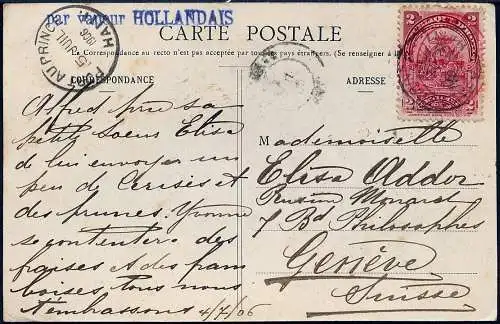 par vapeur HOLLANDAIS
PORT AU PRINCE
HAITI
15 JUIL
1906
CARTE POSTALE
La Correspondance au recto n'est pas acceptée par tous les pays étrangers. (Se renseigner à
CORRESPONDANCE
ADRESSE
2
2
Alfred prie sa
petite soeur Elisa
de lui envoyer un
peu de Cerises et
des prunes. Yvonne
se contentera des
fraises et des fram
boises, tous nous
t'embrassons 4/7/06
Mademoiselle
Elisa Addor
Pension Monard
7 Bd Philosophes
Genève
Suisse